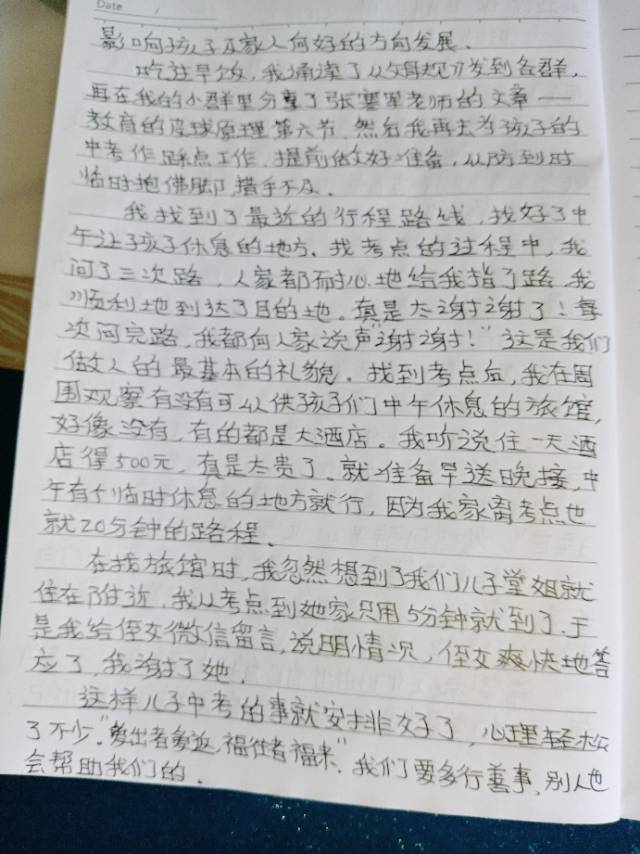 Date
影响孩子及家人向好的方向发展.
吃过早饭,我诵读了《父母规》发到各群,
再在我的小群里分享了张寒军老师的文章——
教育的皮球原理第六节.然后我再去为孩子的
中考作踩点工作,提前做好准备,以防到时
临时抱佛脚,措手不及.
我找到了最近的行程路线,找好了中
午让孩子休息的地方.找考点的过程中,我
问了三次路,人家都耐心地给我指了路,我
顺利地到达了目的地.真是太谢谢了!每
次问完路,我都向人家说声"谢谢!"这是我们
做人的最基本的礼貌.找到考点后,我在周
围观察有没有可以供孩子们中午休息的旅馆,
好像没有,有的都是大酒店.我听说住一天酒
店得500元,真是太贵了.就准备早送晚接,中
午有个临时休息的地方就行,因为我家离考点也
就20分钟的路程.
在找旅馆时,我忽然想到了我们儿子堂姐就
住在附近,我从考点到她家只用5分钟就到了.于
是我给侄女微信留言,说明情况,侄女爽快地答
应了,我谢了她.
这样儿子中考的事就安排好了,心理轻松
了不少."爱出者爱返,福往者福来",我们要多行善事,别人也
会帮助我们的.